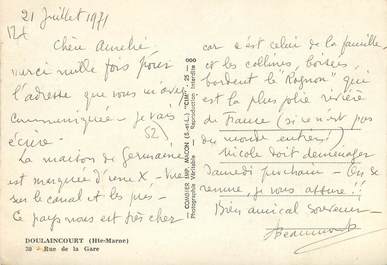 21 Juillet 1971
Chère Amélie,
merci mille fois pour
l'adresse que vous m'avez
communiquée - je vais
écrire.
52)
La maison de Germaine
est marquée d'une X - Vue
sur le canal et les prés -
Ce pays nous est très cher
DOULAINCOURT (Hte-Marne)
30 - Rue de la Gare
COMBIER IMP. MACON (S.-et-L.) "CIM" 25-000
Photographie Véritable Reproduction Interdite
car c'est celui de la famille
et les collines, boisées,
bordent le "Rognon" qui
est la plus jolie rivière
de France (si ce n'est pas
du monde entier!)
Nicole doit déménager
Samedi prochain - On se
remue, je vous assure!!
Bien amical souvenir -